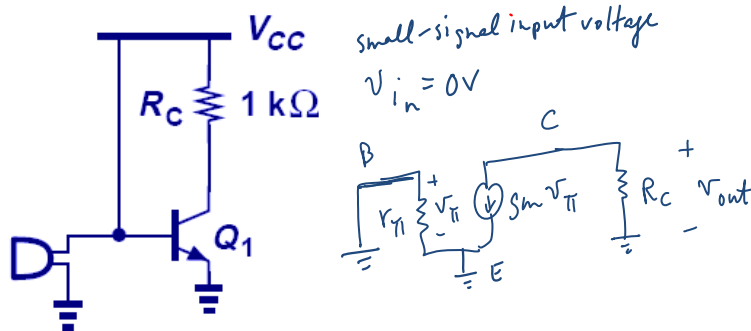 V_CC
R_C 1 kΩ
Q_1
small-signal input voltage
v_in = 0V
B
C
r_π
+
v_π
-
g_m v_π
E
R_C
+
v_out
-